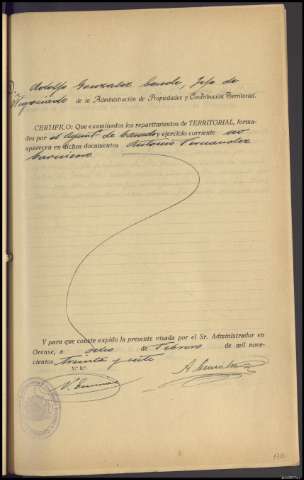 Adolfo Gonzalez Conde, Jefe de
Negociado de la Administración de Propiedades y Contribución Territorial.
CERTIFICO: Que examinados los repartimientos de TERRITORIAL, forma-
dos por el Ayunt. de y ejercicio corriente no
aparecen en dichos documentos Antonio Fernandez
Y para que conste expido la presente visada por el Sr. Administrador en
Orense, a de Febrero de mil nove-
cientos treinta y siete
V.º B.º